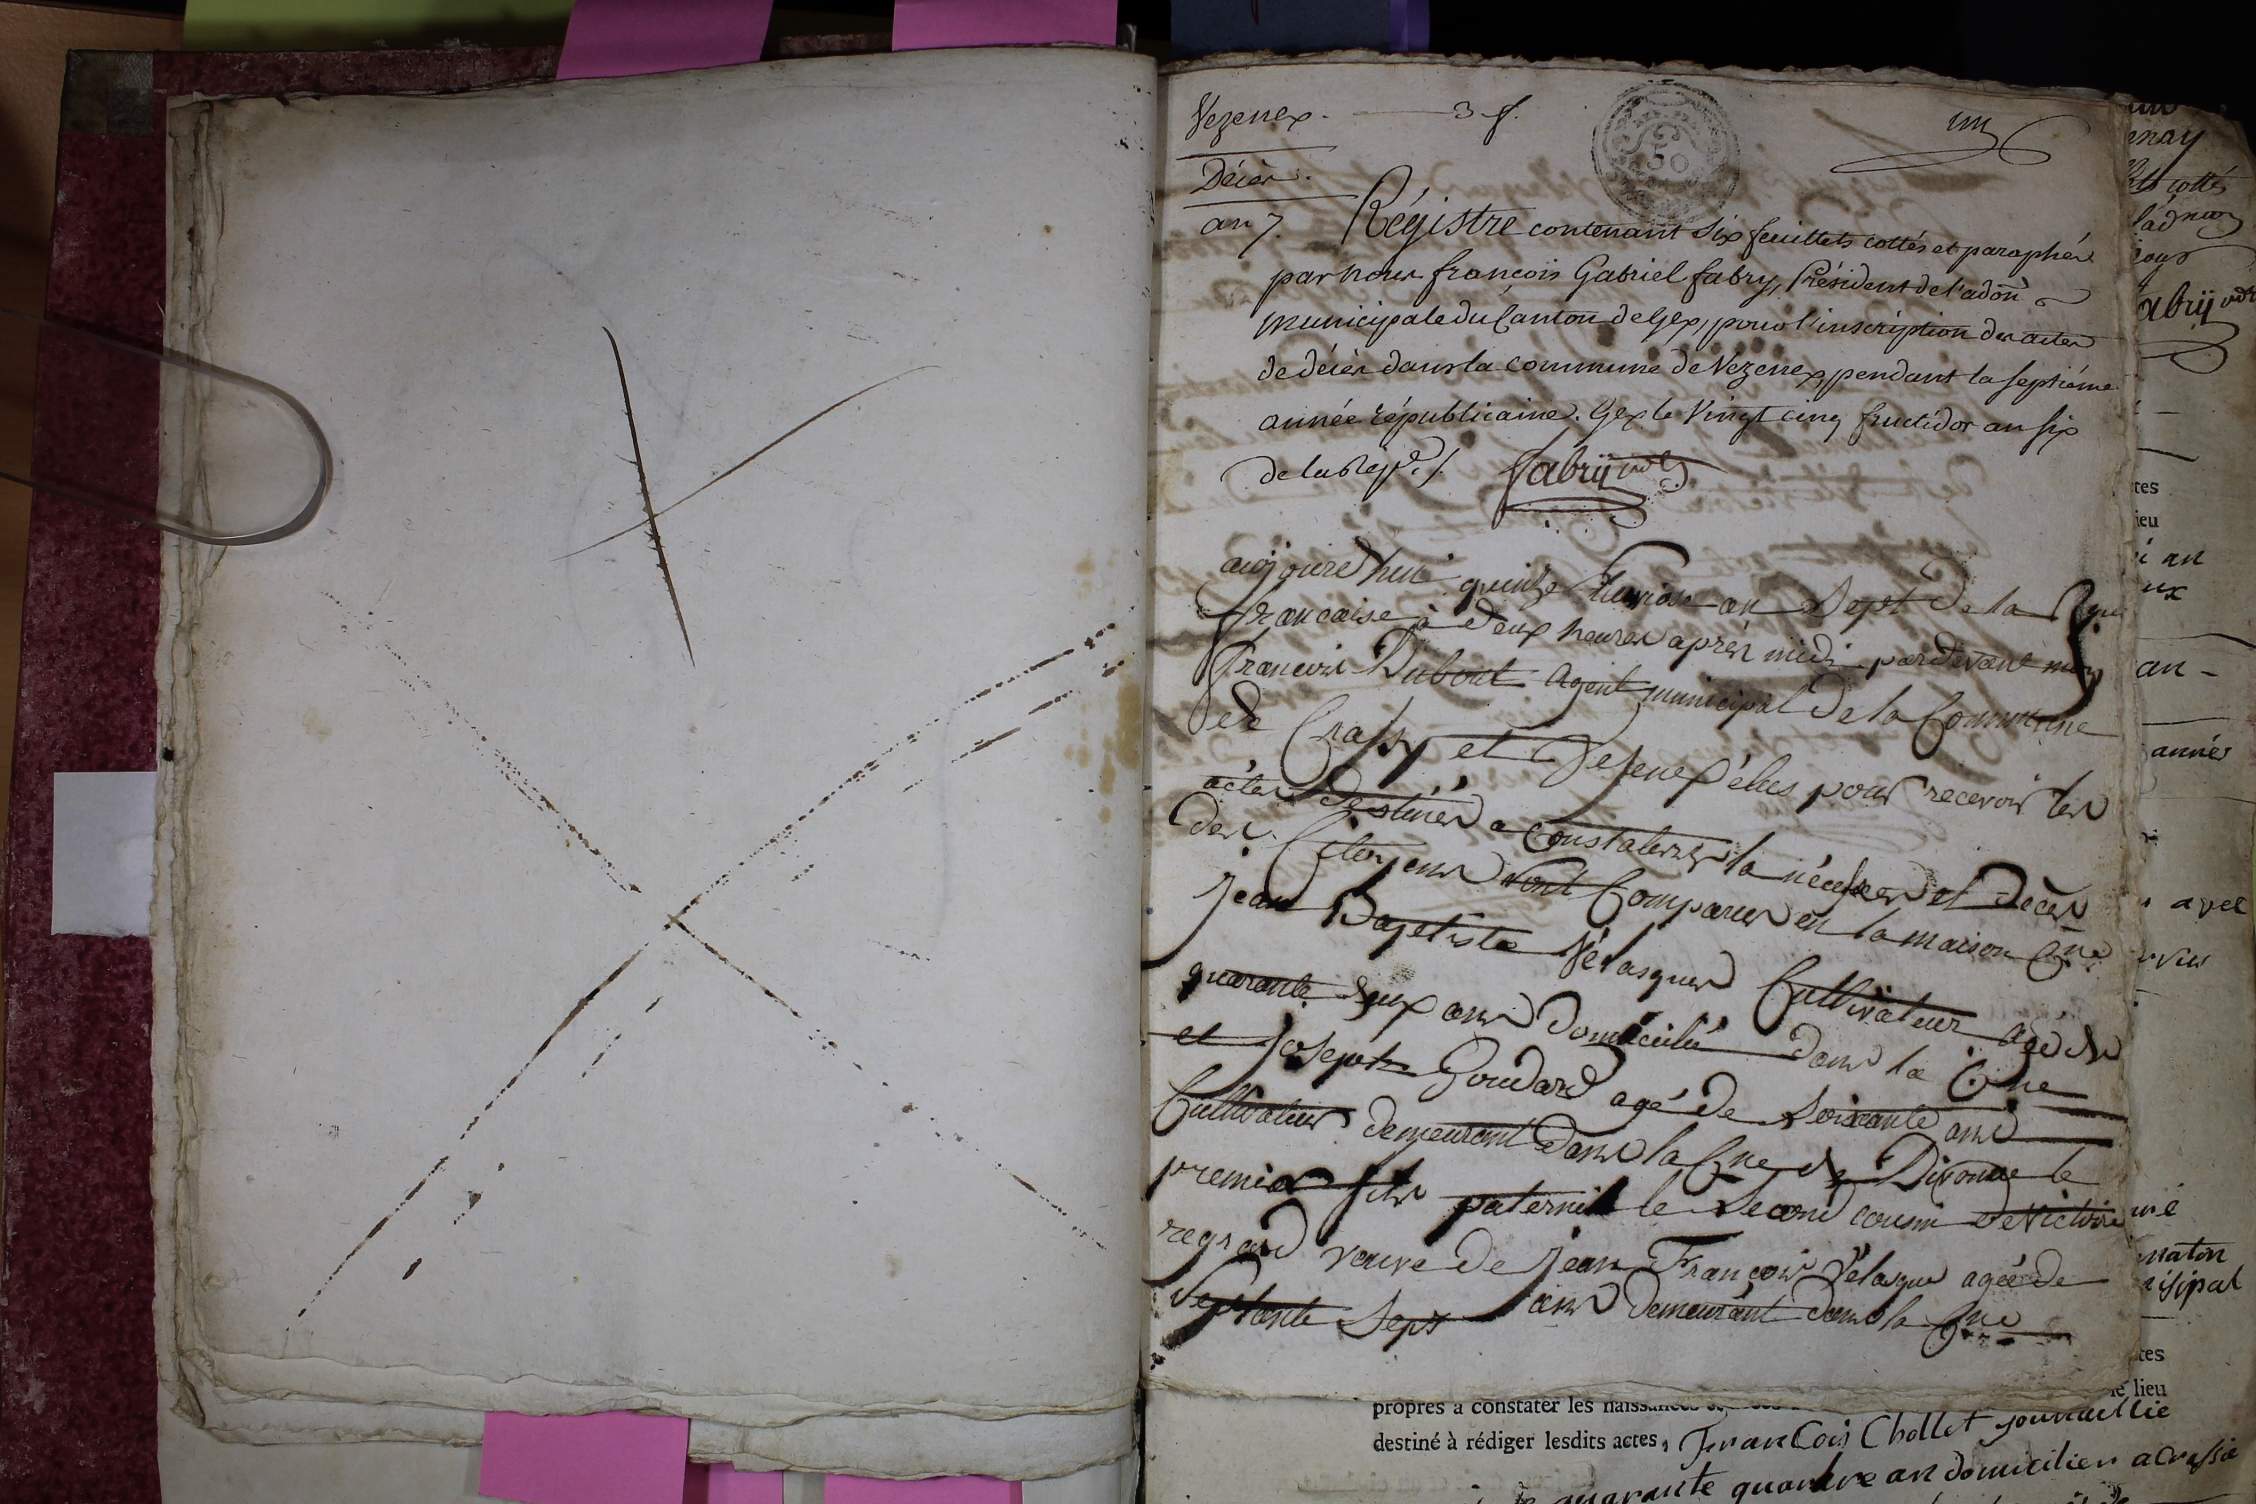 Vezenex. — 3 f.
50
Décès.
an 7.
Régistre contenant six feuillets cottés et paraphés
par nous françois Gabriel fabry, Président de l'adon
municipale du Canton de Gex, pour l'inscription des actes
de décès dans la commune de Vezenex, pendant la septième
année républicaine. Gex le Vingt cinq fructidor an six
de la Rép.e /. fabry
aujourdhui quinze Pluviose an Sept de la Rque
francaise à deux heures aprés midi pardevant moy
francois Dubout agent municipal de la Commune
de Crassy et Vesenex élus pour recevoir les
actes destinés a constaterer la
des Citoyens sont Comparus en la maison Cne
Jean Baptiste Vélasques Cultivateur agé de
quarante deux ans domicilié dans la Cne
et Joseph Goudard agé de soixante ans
Cultivateur demeurant dans la Cne de Divonne le
premier fils paternil le second cousin de Victoire
regard veuve de Jean François Vélasque agée de
septante sept ans demeurant dans la Cne
enay
cottés
abry
tes
ieu
an
ux
an -
année
avec
nicipal
tes
propres a constater les naissances
le lieu
destiné à rédiger lesdits actes, franCois Chollet journaillie
quarante quandre an domicilien a Crassie